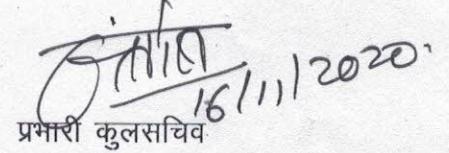 16/11/2020.
प्रभारी कुलसचिव